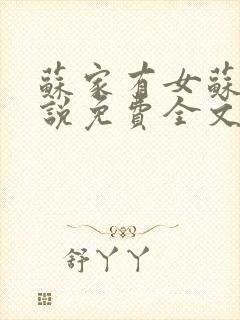 蘇家有女蘇
說免費全文
舒丫丫